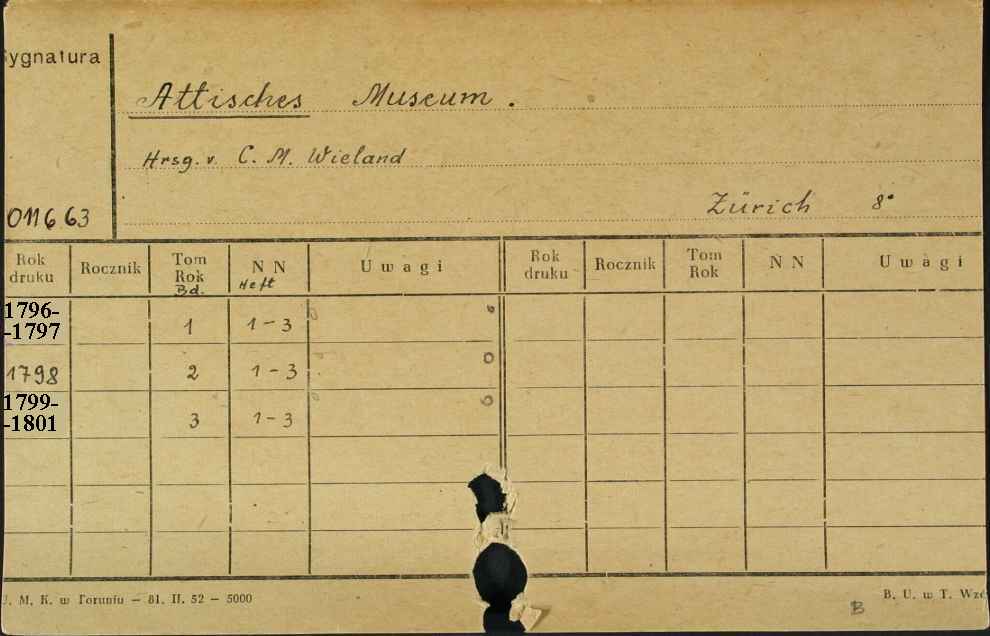 Sygnatura
Attisches Museum.
Hrsg. v. C. M. Wieland
011663
Zürich 8°
Rok druku Rocznik Tom Rok Bd. N N Heft Uwagi Rok druku Rocznik Tom Rok N N Uwagi
1796-
-1797 1 1-3
1798 2 1-3
1799-
-1801 3 1-3
U. M. K. w Toruniu — 81. II. 52 — 5000
B. U. w T. Wzó
B